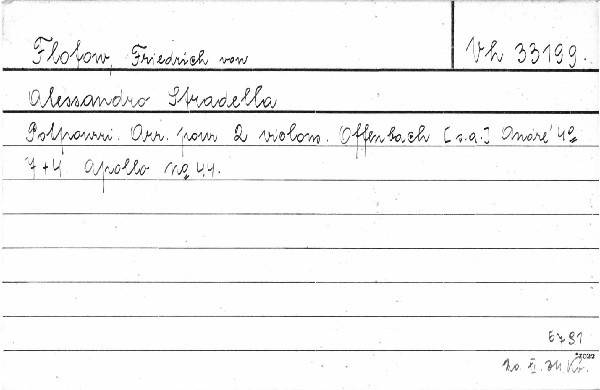 Flotow, Friedrich von
Vh 33199.
Alessandro Stradella
Potpourri. Arr. pour 2 violons. Offenbach [s.a.] André 4º
7+4 Apollo No 41.
E791